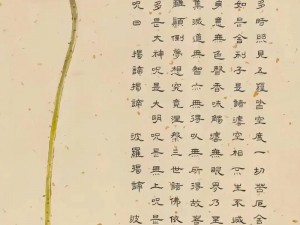 多時照見五蘊皆空度一切苦厄舍
如是舍利子是諸法空相不生不滅
意無色聲香味觸法無眼界乃至
集滅道無智亦無得以無所得故菩
離顛倒夢想究竟涅槃三世諸佛依
多是大神呪是大明呪是無上呪是
呪曰 揭諦揭諦 波羅揭諦 波